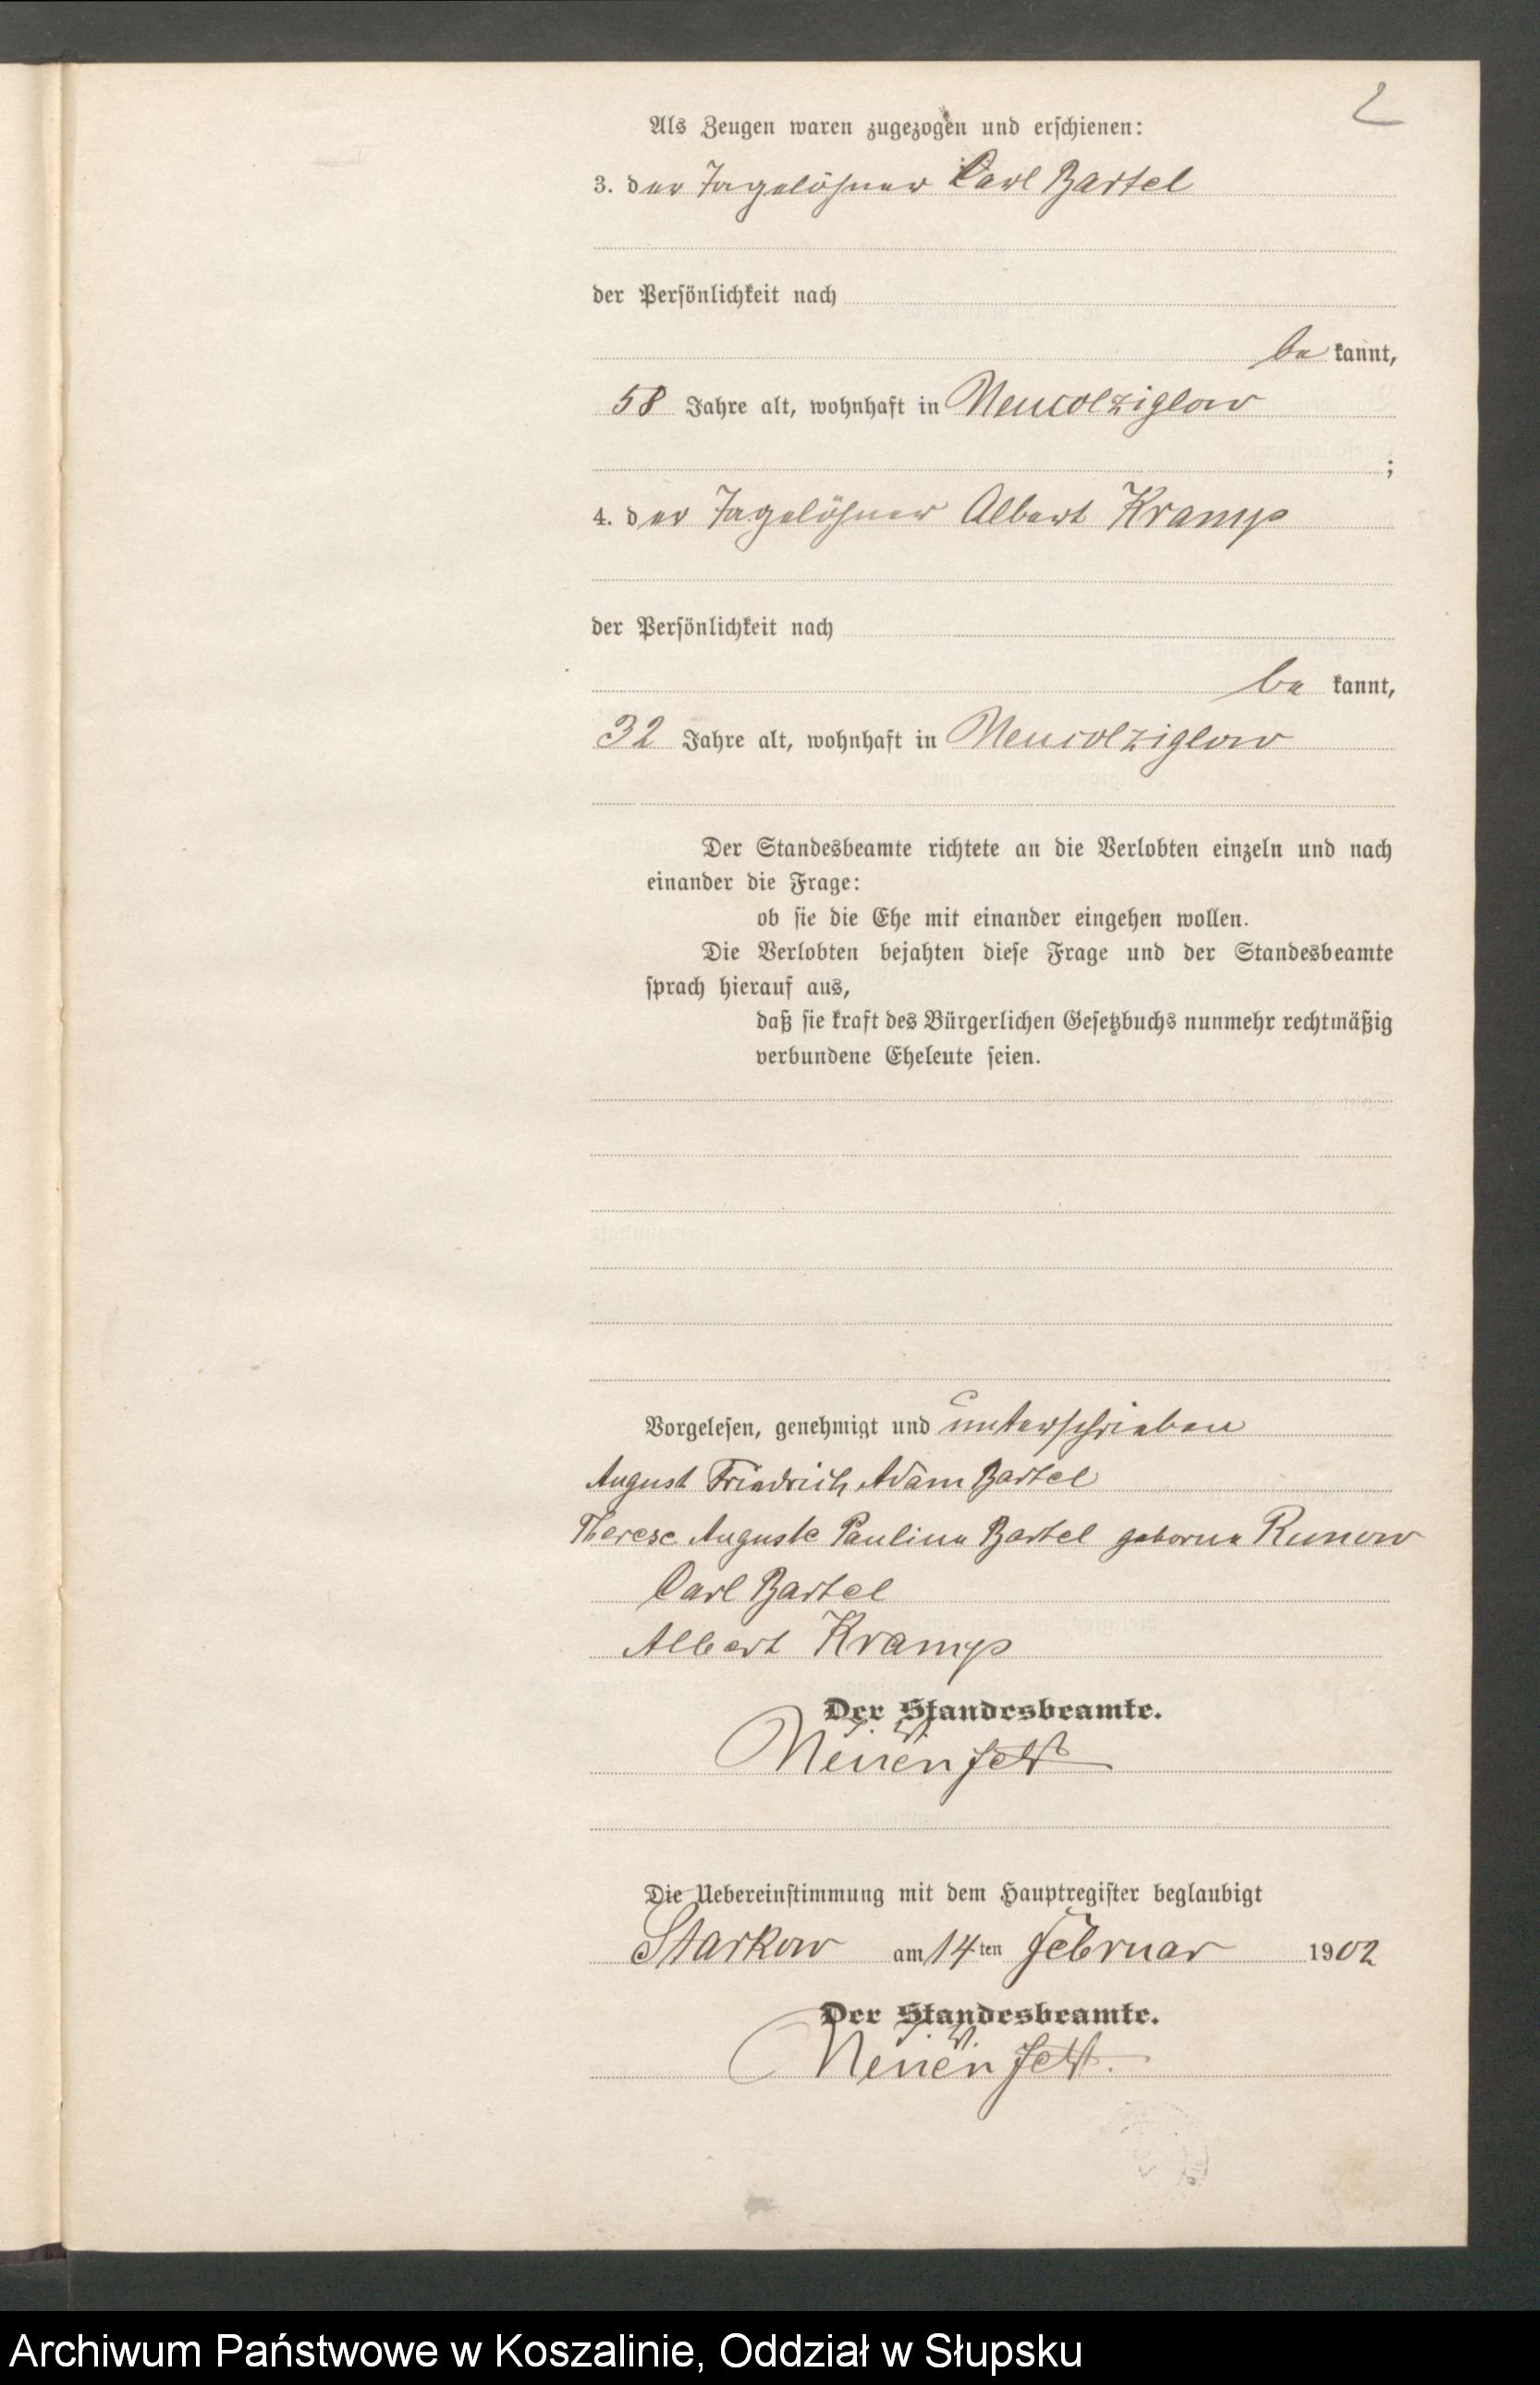 2
Als Zeugen waren zugezogen und erschienen:
3. der Tagelöhner Carl Bartel
der Persönlichkeit nach
be kannt,
58 Jahre alt, wohnhaft in Neucolziglow
;
4. der Tagelöhner Albert Kramp
der Persönlichkeit nach
be kannt,
32 Jahre alt, wohnhaft in Neucolziglow
Der Standesbeamte richtete an die Verlobten einzeln und nach
einander die Frage:
ob sie die Ehe mit einander eingehen wollen.
Die Verlobten bejahten diese Frage und der Standesbeamte
sprach hierauf aus,
daß sie kraft des Bürgerlichen Gesetzbuchs nunmehr rechtmäßig
verbundene Eheleute seien.
Vorgelesen, genehmigt und unterschrieben
August Friedrich Adam Bartel
Therese Auguste Pauline Bartel geborne Runow
Carl Bartel
Albert Kramp
Der Standesbeamte.
Die Uebereinstimmung mit dem Hauptregister beglaubigt
Starkow am 14ten Februar 1902
Der Standesbeamte.
Archiwum Państwowe w Koszalinie, Oddział w Słupsku